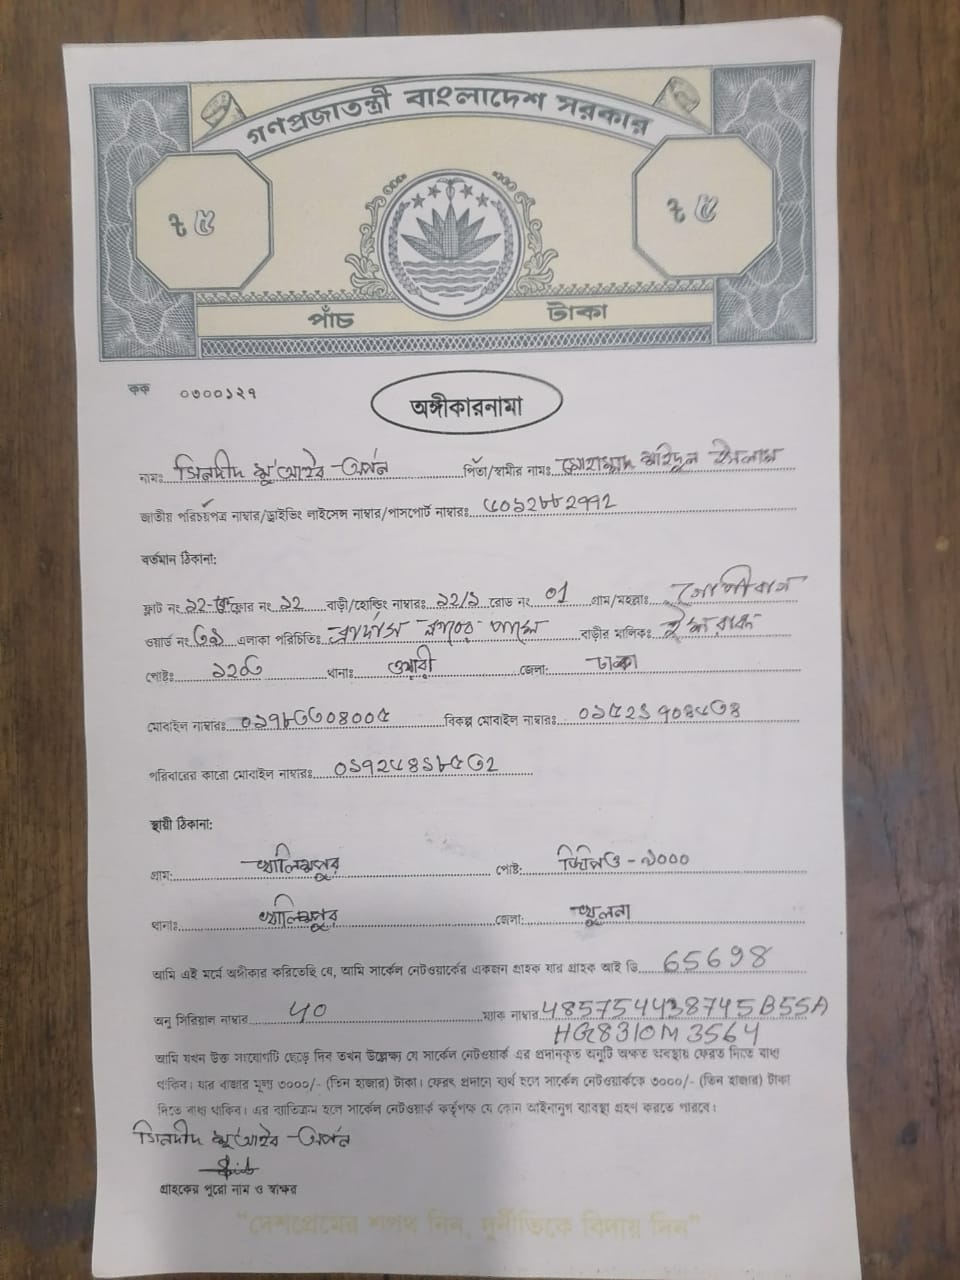 গণপ্রজাতন্ত্রী বাংলাদেশ সরকার
৳ ৫
৳ ৫
পাঁচ টাকা
কক ০৩০০১২৭
অঙ্গীকারনামা
নামঃ পিতা/স্বামীর নামঃ মোহাম্মদ শহিদুল ইসলাম
জাতীয় পরিচয়পত্র নাম্বার/ড্রাইভিং লাইসেন্স নাম্বার/পাসপোর্ট নাম্বারঃ
বর্তমান ঠিকানা:
ফ্লাট নং ফ্লোর নং ১২ বাড়ী/হোল্ডিং নাম্বারঃ ১২/১ রোড নং 01 গ্রাম/মহল্লাঃ গোপীবাগ
ওয়ার্ড নং ৩৯ এলাকা পরিচিতিঃ ব্রাদার্স ক্লাবের পাশে বাড়ীর মালিকঃ
পোষ্টঃ ১২০৩ থানাঃ ওয়ারী জেলা: ঢাকা
মোবাইল নাম্বারঃ বিকল্প মোবাইল নাম্বারঃ
পরিবারের কারো মোবাইল নাম্বারঃ
স্থায়ী ঠিকানা:
গ্রাম: খালিশপুর পোষ্ট: জিপিও - ৯০০০
থানাঃ খালিশপুর জেলা: খুলনা
আমি এই মর্মে অঙ্গীকার করিতেছি যে, আমি সার্কেল নেটওয়ার্কের একজন গ্রাহক যার গ্রাহক আই ডি 65698
অনু সিরিয়াল নাম্বার ৫০ ম্যাক নাম্বার 4857544438745B55A
HG8310M 3564
আমি যখন উক্ত সংযোগটি ছেড়ে দিব তখন উল্লেক্ষ্য যে সার্কেল নেটওয়ার্ক এর প্রদানকৃত অনুটি অক্ষত অবস্থায় ফেরত দিতে বাধ্য
থাকিব। যার বাজার মূল্য ৩০০০/- (তিন হাজার) টাকা। ফেরৎ প্রদানে ব্যর্থ হলে সার্কেল নেটওয়ার্ককে ৩০০০/- (তিন হাজার) টাকা
দিতে বাধ্য থাকিব। এর ব্যতিক্রম হলে সার্কেল নেটওয়ার্ক কর্তৃপক্ষ যে কোন আইনানুগ ব্যবস্থা গ্রহণ করতে পারবে।
গ্রাহকের পুরো নাম ও স্বাক্ষর
"দেশপ্রেমের শপথ নিন, দুর্নীতিকে বিদায় দিন"